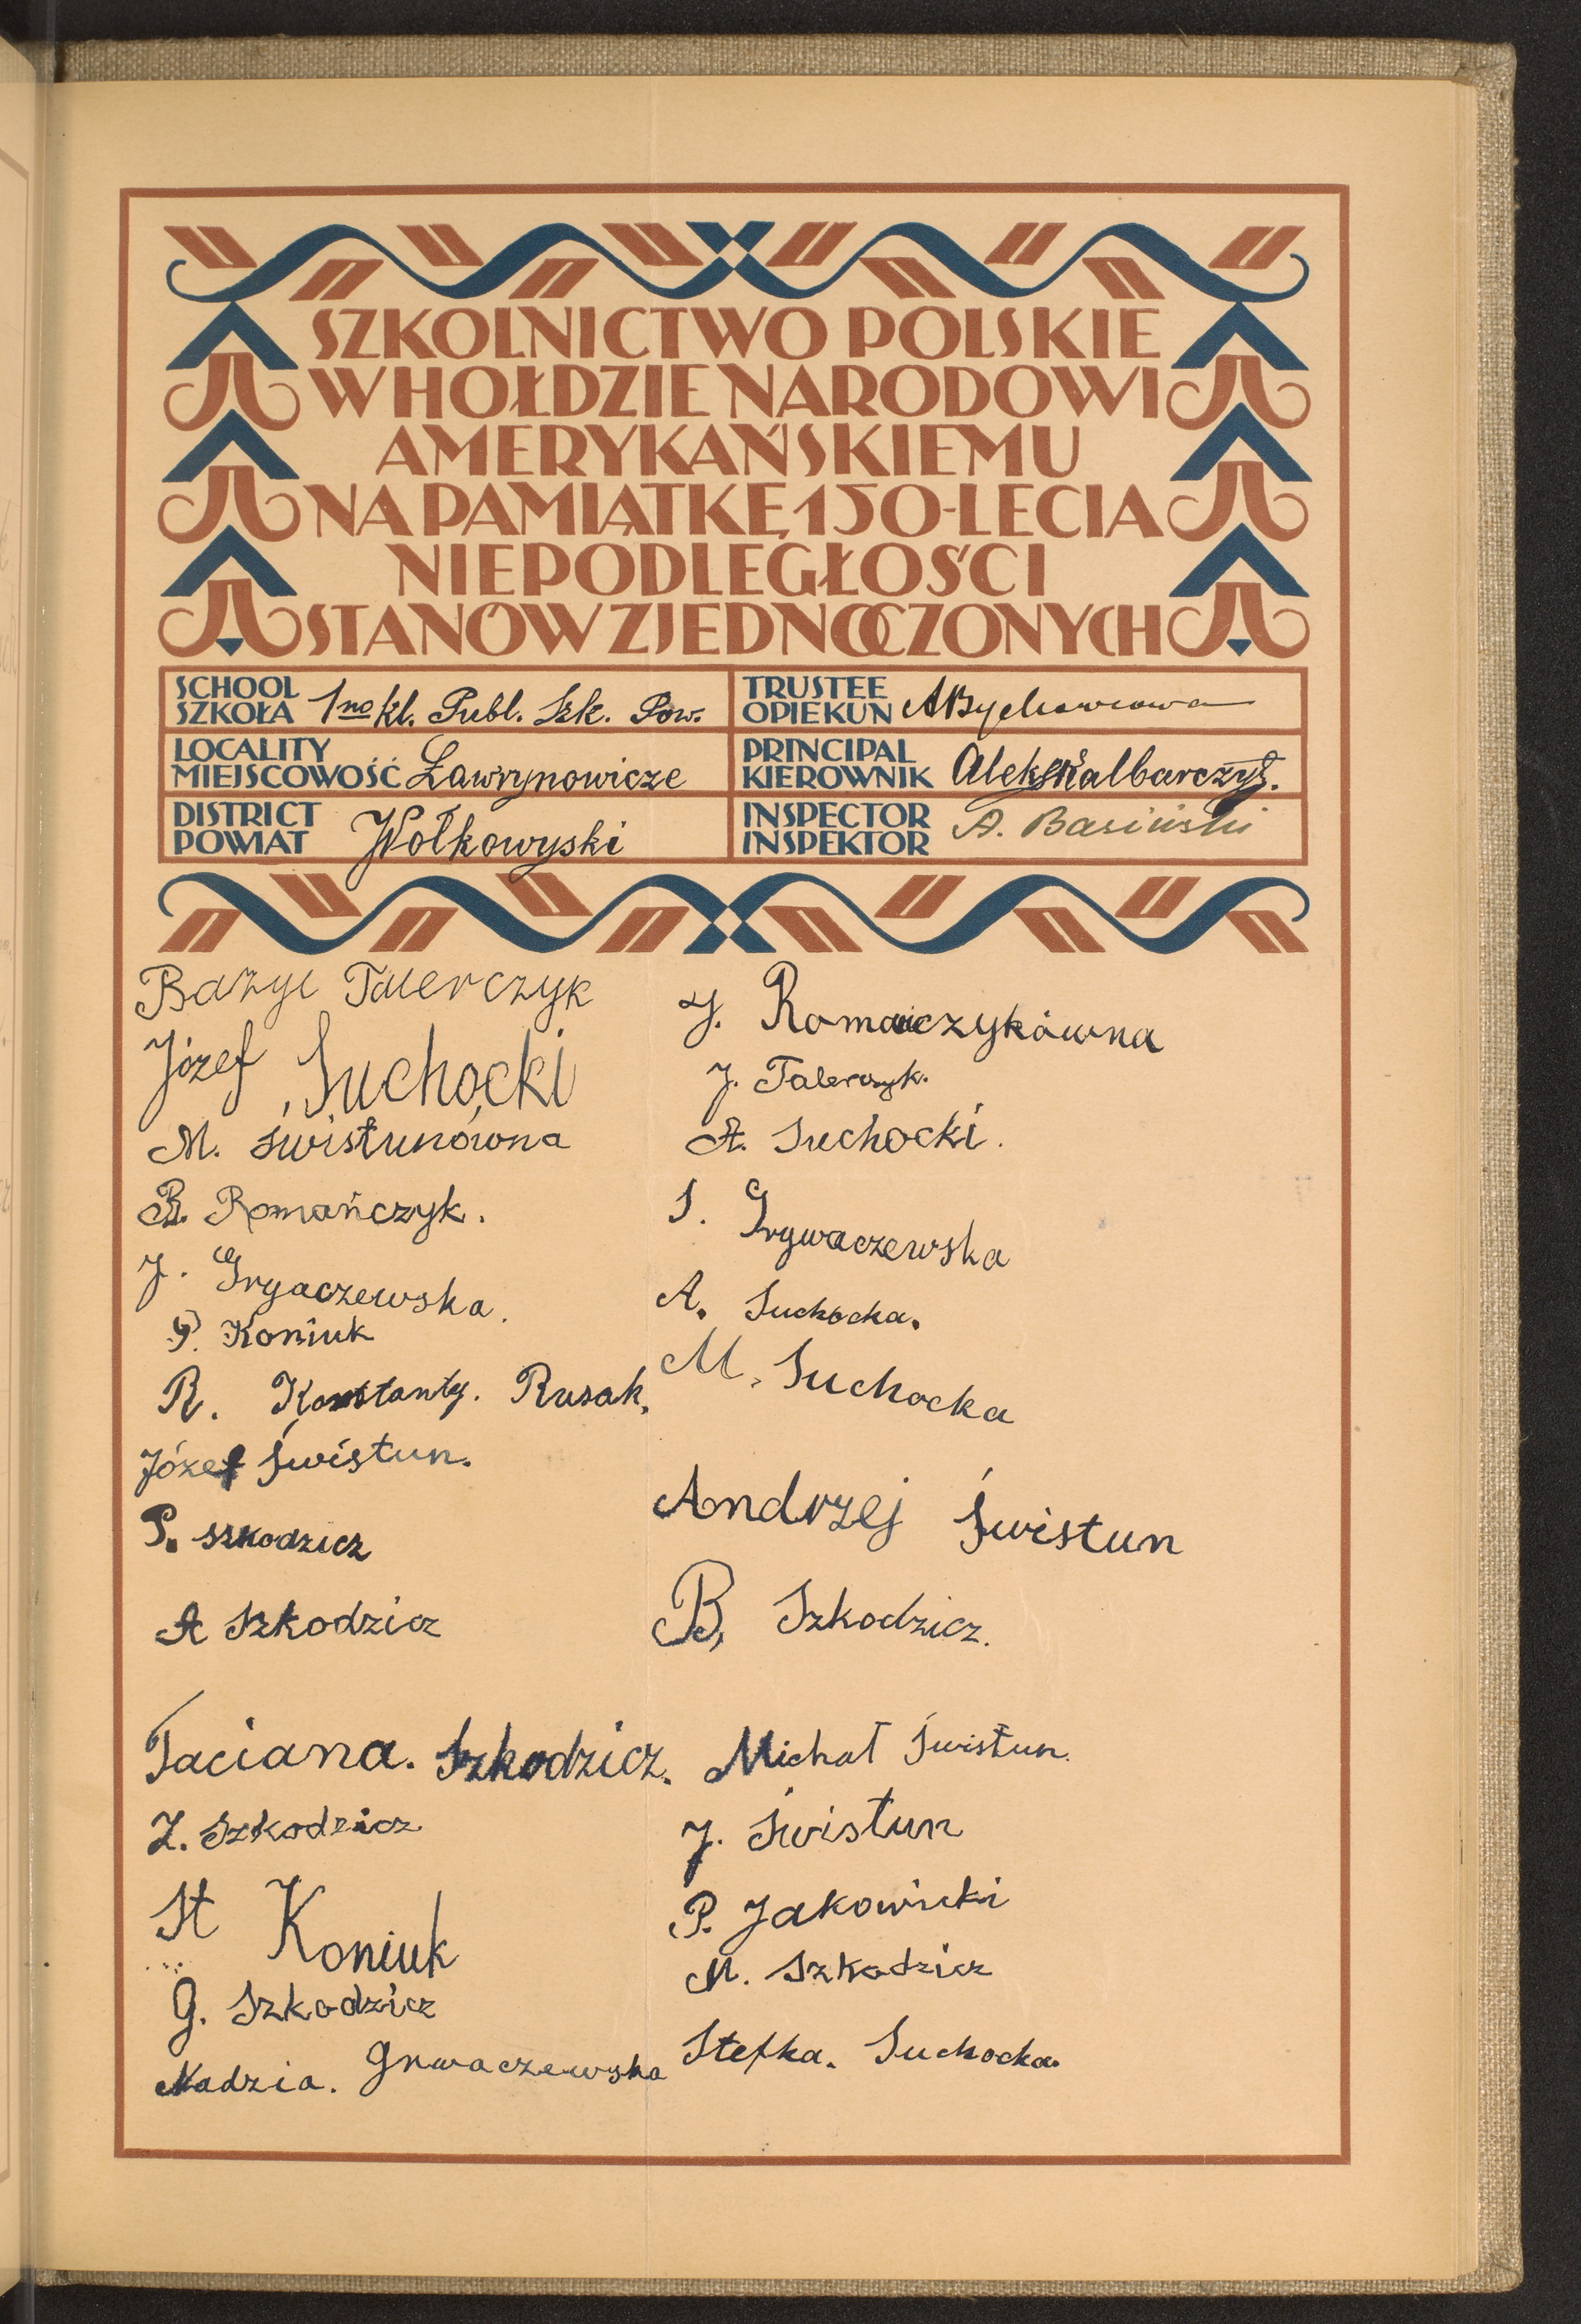 SZKOLNICTWO POLSKIE
W HOŁDZIE NARODOWI
AMERYKAŃSKIEMU
NA PAMIĄTKĘ 150-LECIA
NIEPODLEGŁOŚCI
STANÓW ZJEDNOCZONYCH
SCHOOL
SZKOŁA 1no kl. Publ. Szk. Pow.
TRUSTEE
OPIEKUN
LOCALITY
MIEJSCOWOŚĆ Ławrynowicze
PRINCIPAL
KIEROWNIK
DISTRICT
POWIAT Wołkowyski
INSPECTOR
INSPEKTOR A. Basiński
Bazyl Talerczyk
Józef Suchocki
M. Świstunówna
B. Romańczyk.
J. Grygaczewska.
P. Koniuk
R. Konstanty. Rusak.
Józef Świstun.
P. Szkodzicz
A Szkodzicz
Taciana. Szkodzicz.
Z. Szkodzicz
St Koniuk
G. Szkodzicz
Nadzia. Grwaczewska
J. Romańczykówna
J. Talerczyk.
A. Suchocki.
S. Grywaczewska
A. Suchocka.
M. Suchocka
Andrzej Świstun
B. Szkodzicz.
Michał Świstun.
J. Świstun
P. Jakowicki
M. Szkodzicz
Stefka. Suchocka.